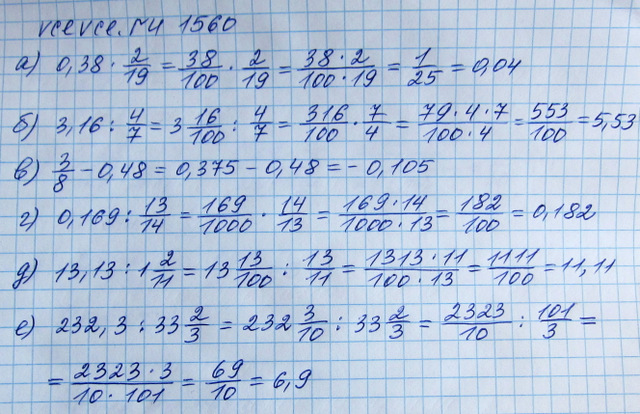 vcevce.ru 1560
а) 0,38 · 2/19 = 38/100 · 2/19 = 38·2/100·19 = 1/25 = 0,04
б) 3,16 : 4/7 = 3 16/100 : 4/7 = 316/100 · 7/4 = 79·4·7/100·4 = 553/100 = 5,53
в) 3/8 - 0,48 = 0,375 - 0,48 = - 0,105
г) 0,169 : 13/14 = 169/1000 · 14/13 = 169·14/1000·13 = 182/100 = 0,182
д) 13,13 : 1 2/11 = 13 13/100 : 13/11 = 1313·11/100·13 = 1111/100 = 11,11
е) 232,3 : 33 2/3 = 232 3/10 : 33 2/3 = 2323/10 : 101/3 =
= 2323·3/10·101 = 69/10 = 6,9